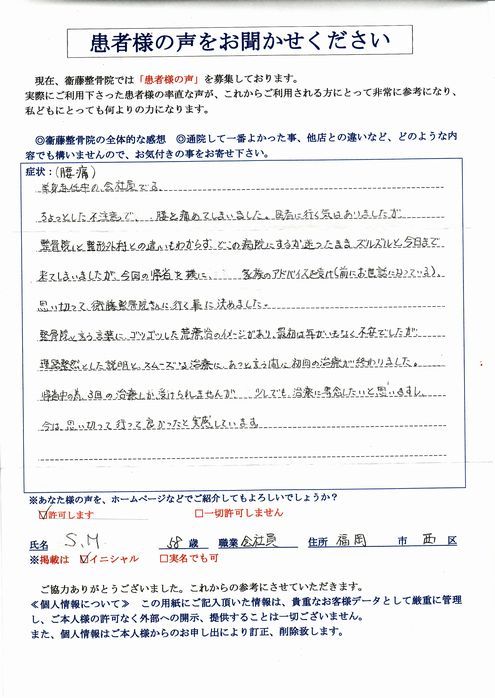 患者様の声をお聞かせください
現在、衞藤整骨院では「患者様の声」を募集しております。
実際にご利用下さった患者様の率直な声が、これからご利用される方にとって非常に参考になり、
私どもにとっても何よりの力になります。
◎衞藤整骨院の全体的な感想 ◎通院して一番よかった事、他店との違いなど、どのような内
容でも構いませんので、お気付きの事をお寄せ下さい。
症状：(腰痛)
単身赴任中の会社員でる。
ちょっとした不注意で、腰を痛めてしまいました。医者に行く気はありましたが
整骨院と整形外科との違いもわからず、どこの病院にするか迷ったまま ズルズルと今日まで
来てしまいましたが、今回の帰省を機に、家族のアドバイスを受け(前にお世話になっている)、
思い切って衛藤整骨院さんに行く事に決めました。
整骨院と言う言葉に、ゴツゴツした荒療治のイメージがあり、最初は 不安でしたが
理路整然とした説明と、スムーズな治療に あっと言う間に初回の治療が終わりました。
帰省中の為、3回の治療しか受けられませんが、少しでも、治療に専念したいと思いますし、
今は、思い切って行って良かったと実感しています。
※あなた様の声を、ホームページなどでご紹介してもよろしいでしょうか？
☑許可します □一切許可しません
氏名 S.M 58歳 職業 会社員 住所 福岡 市 西 区
※掲載は ☑イニシャル □実名でも可
ご協力ありがとうございました。これからの参考にさせていただきます。
≪個人情報について≫ この用紙にご記入頂いた情報は、貴重なお客様データとして厳重に管理
し、ご本人様の許可なく外部への開示、提供することは一切ございません。
また、個人情報はご本人様からのお申し出により訂正、削除致します。